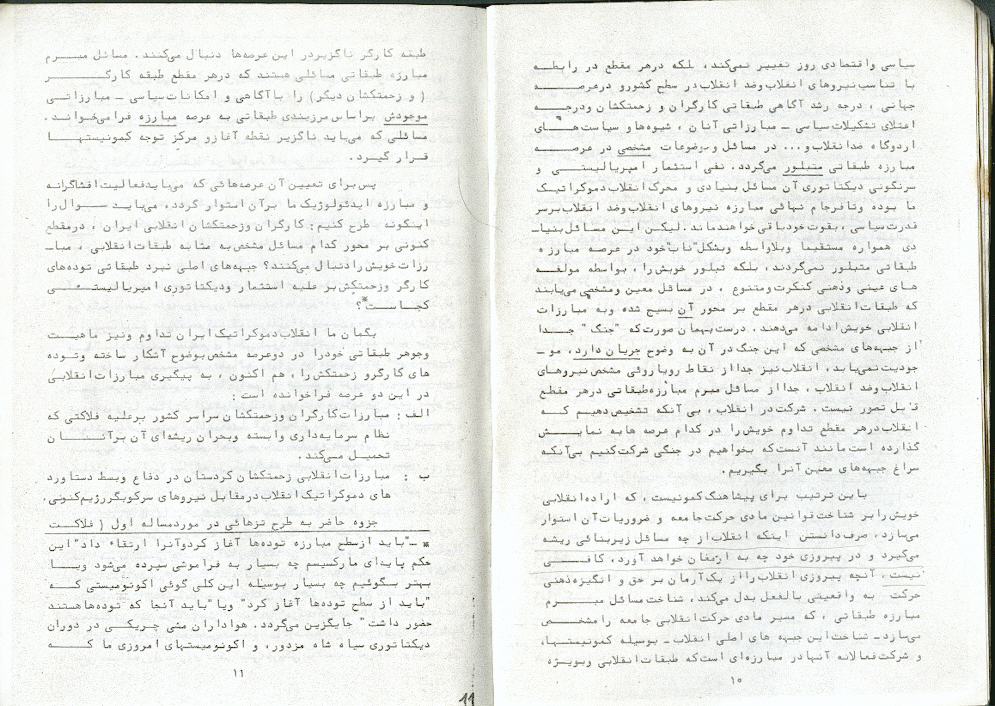 سیاسی واقتصادی روز تغییر نمی‌کند، بلکه درهر مقطع در رابطه
با تناسب نیروهای انقلاب وضد انقلاب در سطح کشورو درعرصه
جهانی ، درجه رشد آگاهی طبقاتی کارگران و زحمتکشان ودرجه
اعتلای تشکیلات سیاسی ـ مبارزاتی آنان ، شیوه‌ها و سیاست هـای
اردوگاه ضدانقلاب و... در مسائل وموضوعات مشخصی در عرصـه
مبارزه طبقاتی متبلور می‌گردد. نفی استثمار امپریالیستـی و
سرنگونی دیکتاتوری آن مسائل بنیادی و محرک انقلاب دموکراتیک
ما بوده وتافرجام نهائی مبارزه نیروهای انقلاب وضد انقلاب برسر
قدرت سیاسی ، بقوت خودباقی خواهندماند. لیکن این مسائل بنیاـ
دی همواره مستقیما وبلاواسطه وبشکل"ناب"خود در عرصه مبارزه
طبقاتی متبلور نمی‌گردند، بلکه تبلور خویش‌را، بواسطه مولفـه
های عینی وذهنی کنکرت‌ومتنوع ، در مسائل معین ومشخص می‌یابند
که طبقات انقلابی درهر مقطع بر محور آن بسیج شده وبه مبارزات
انقلابی خویش ادامه می‌دهند. درست بهمان صورت که "جنگ " جـدا
از جبهه‌های مشخصی که این جنگ در آن به وضوح جریان دارد ، موـ
جودیت نمی‌یابد، انقلاب نیز جدا از نقاط رویاروئی مشخص نیروهای
انقلاب وضد انقلاب ، جدا از مسائل مبرم مبارزه‌طبقاتی درهر مقطع
قابل تصور نیست . شرکت در انقلاب ، بی آنکه تشخیص دهیم کـه
انقلاب درهر مقطع تداوم خویش را در کدام عرصه هابه نمایـش
گذارده است مانند آنست که بخواهیم در جنگی شرکت کنیم بی‌آنکه
سراغ جبهه‌های معین آنرا بگیریم.
باین ترتیب برای پیشاهنگ کمونیست ، که اراده‌انقلابی
خویش‌را بر شناخت قوانین مادی حرکت جامعه و ضروریات آن استوار
می‌سازد، صرف دانستن اینکه انقلاب از چه مسائل زیربنائی ریشه
می‌گیرد و در پیروزی خود چه به ارمغان خواهد آورد، کافـی
نیست ، آنچه پیروزی انقلاب را از یک آرمان بر حق و انگیزه‌ذهنی
حرکت به واقعیتی بالفعل بدل می‌کند، شناخت مسائل مبـرم
مبارزه طبقاتی ، که مسیر مادی حرکت انقلابی جامعه را مشخـص
می‌سازد ـ شناخت این جبهه های اصلی انقلاب ـ بوسیله کمونیستهـا،
و شرکت فعالانه آنها در مبارزه‌ای است که طبقات انقلابی وبویژه
۱۰
طبقه کارگر ناگزیردر این عرصه‌ها دنبال می‌کنند. مسائل مبـرم
مبارزه طبقاتی مسائلی هستند که درهر مقطع طبقه کارگـر
( و زحمتکشان دیگر) را باآگاهی و امکانات سیاسی ـ مبارزاتـی
موجودش براساس مرزبندی طبقاتی به عرصه مبارزه فرا می‌خواند.
مسائلی که می‌باید ناگزیر نقطه آغاز و مرکز توجه کمونیستهـا
قرار گیـرد.
پس برای تعیین آن عرصه‌هائی که می‌باید فعالیت افشاگرانه
و مبارزه ایدئولوژیک ما برآن استوار گردد، می‌باید سـوال را
اینگونه طرح کنیم: کارگران وزحمتکشان انقلابی ایران ، درمقطع
کنونی بر محور کدام مسائل مشخص به مثابه طبقات انقلابی ، مبا‌ـ
رزات خویش‌را دنبال می‌کنند؟ جبهه‌های اصلی نبرد طبقاتی توده‌های
کارگر وزحمتکش بر علیه استثمار ودیکتاتوری امپریالیستـی
کجاسـت*؟
بگمان ما انقلاب دموکراتیک ایران تداوم ونیز ماهیـت
وجوهر طبقاتی خودرا در دوعرصه مشخص بوضوح آشکار ساخته وتـوده
های کارگرو زحمتکش را ، هم اکنون ، به پیگیری مبارزات انقلابـی
در این دو عرصه فراخوانده است :
الف : مبارزات کارگران وزحمتکشان سراسر کشور برعلیه فلاکتی که
نظام سرمایه‌داری وابسته وبحران ریشه‌ای آن برآنـان
تحمیل می‌کند.
ب : مبارزات انقلابی زحمتکشان کردستان در دفاع وبسط دستاورد
های دموکراتیک انقلاب درمقابل نیروهای سرکوبگررژیم‌کنونی.
جزوه حاضر به طرح تزهائی در مورد مساله اول ( فلاکـت
* ـ"باید ازسطح مبارزه توده‌ها آغاز کردوآنرا ارتقاء داد"این
حکم پایه‌ای مارکسیسم چه بسیار به فراموشی سپرده می‌شود ویـا
بهتر بگوئیم چه بسیار بوسیله این کلی گوئی اکونومیستی کـه
"باید از سطح توده‌ها آغاز کرد" ویا "باید آنجا که توده‌هاهستند
حضور داشت" جایگزین می‌گردد. هواداران مشی چریکـی در دوران
دیکتاتوری سیاه شاه مزدور، و اکونومیستهای امروزی ما کـه
۱۱
11